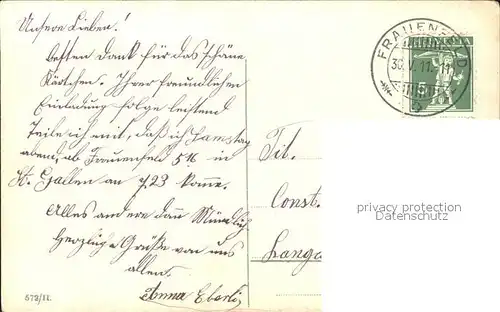 Unsere Lieben!
Besten Dank für das schöne
Kärtchen. Ihrer freundlichen
Einladung folge leistend
Teile ich mit, daß ich Samstag
abend, ab Frauenfeld 5 16 in
St. Gallen an 7.23 komme.
Alles andere dann Mündlich
Herzliche Grüße von uns
allen.
Anna Eberli
573/II.
FRAUENFELD
HELVETIA
5
Tit.
Const.
Langa
privacy protection
Datenschutz